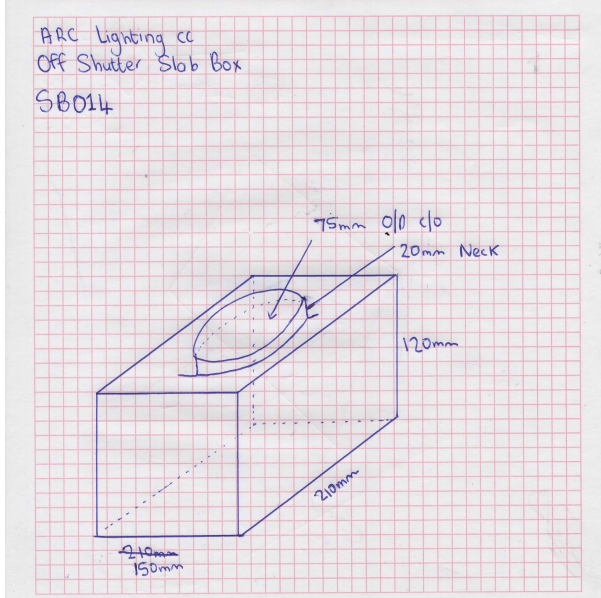 ARC Lighting cc
Off Shutter Slab Box
SB014
75mm O/D c/o
20mm Neck
120mm
210mm
210mm
150mm